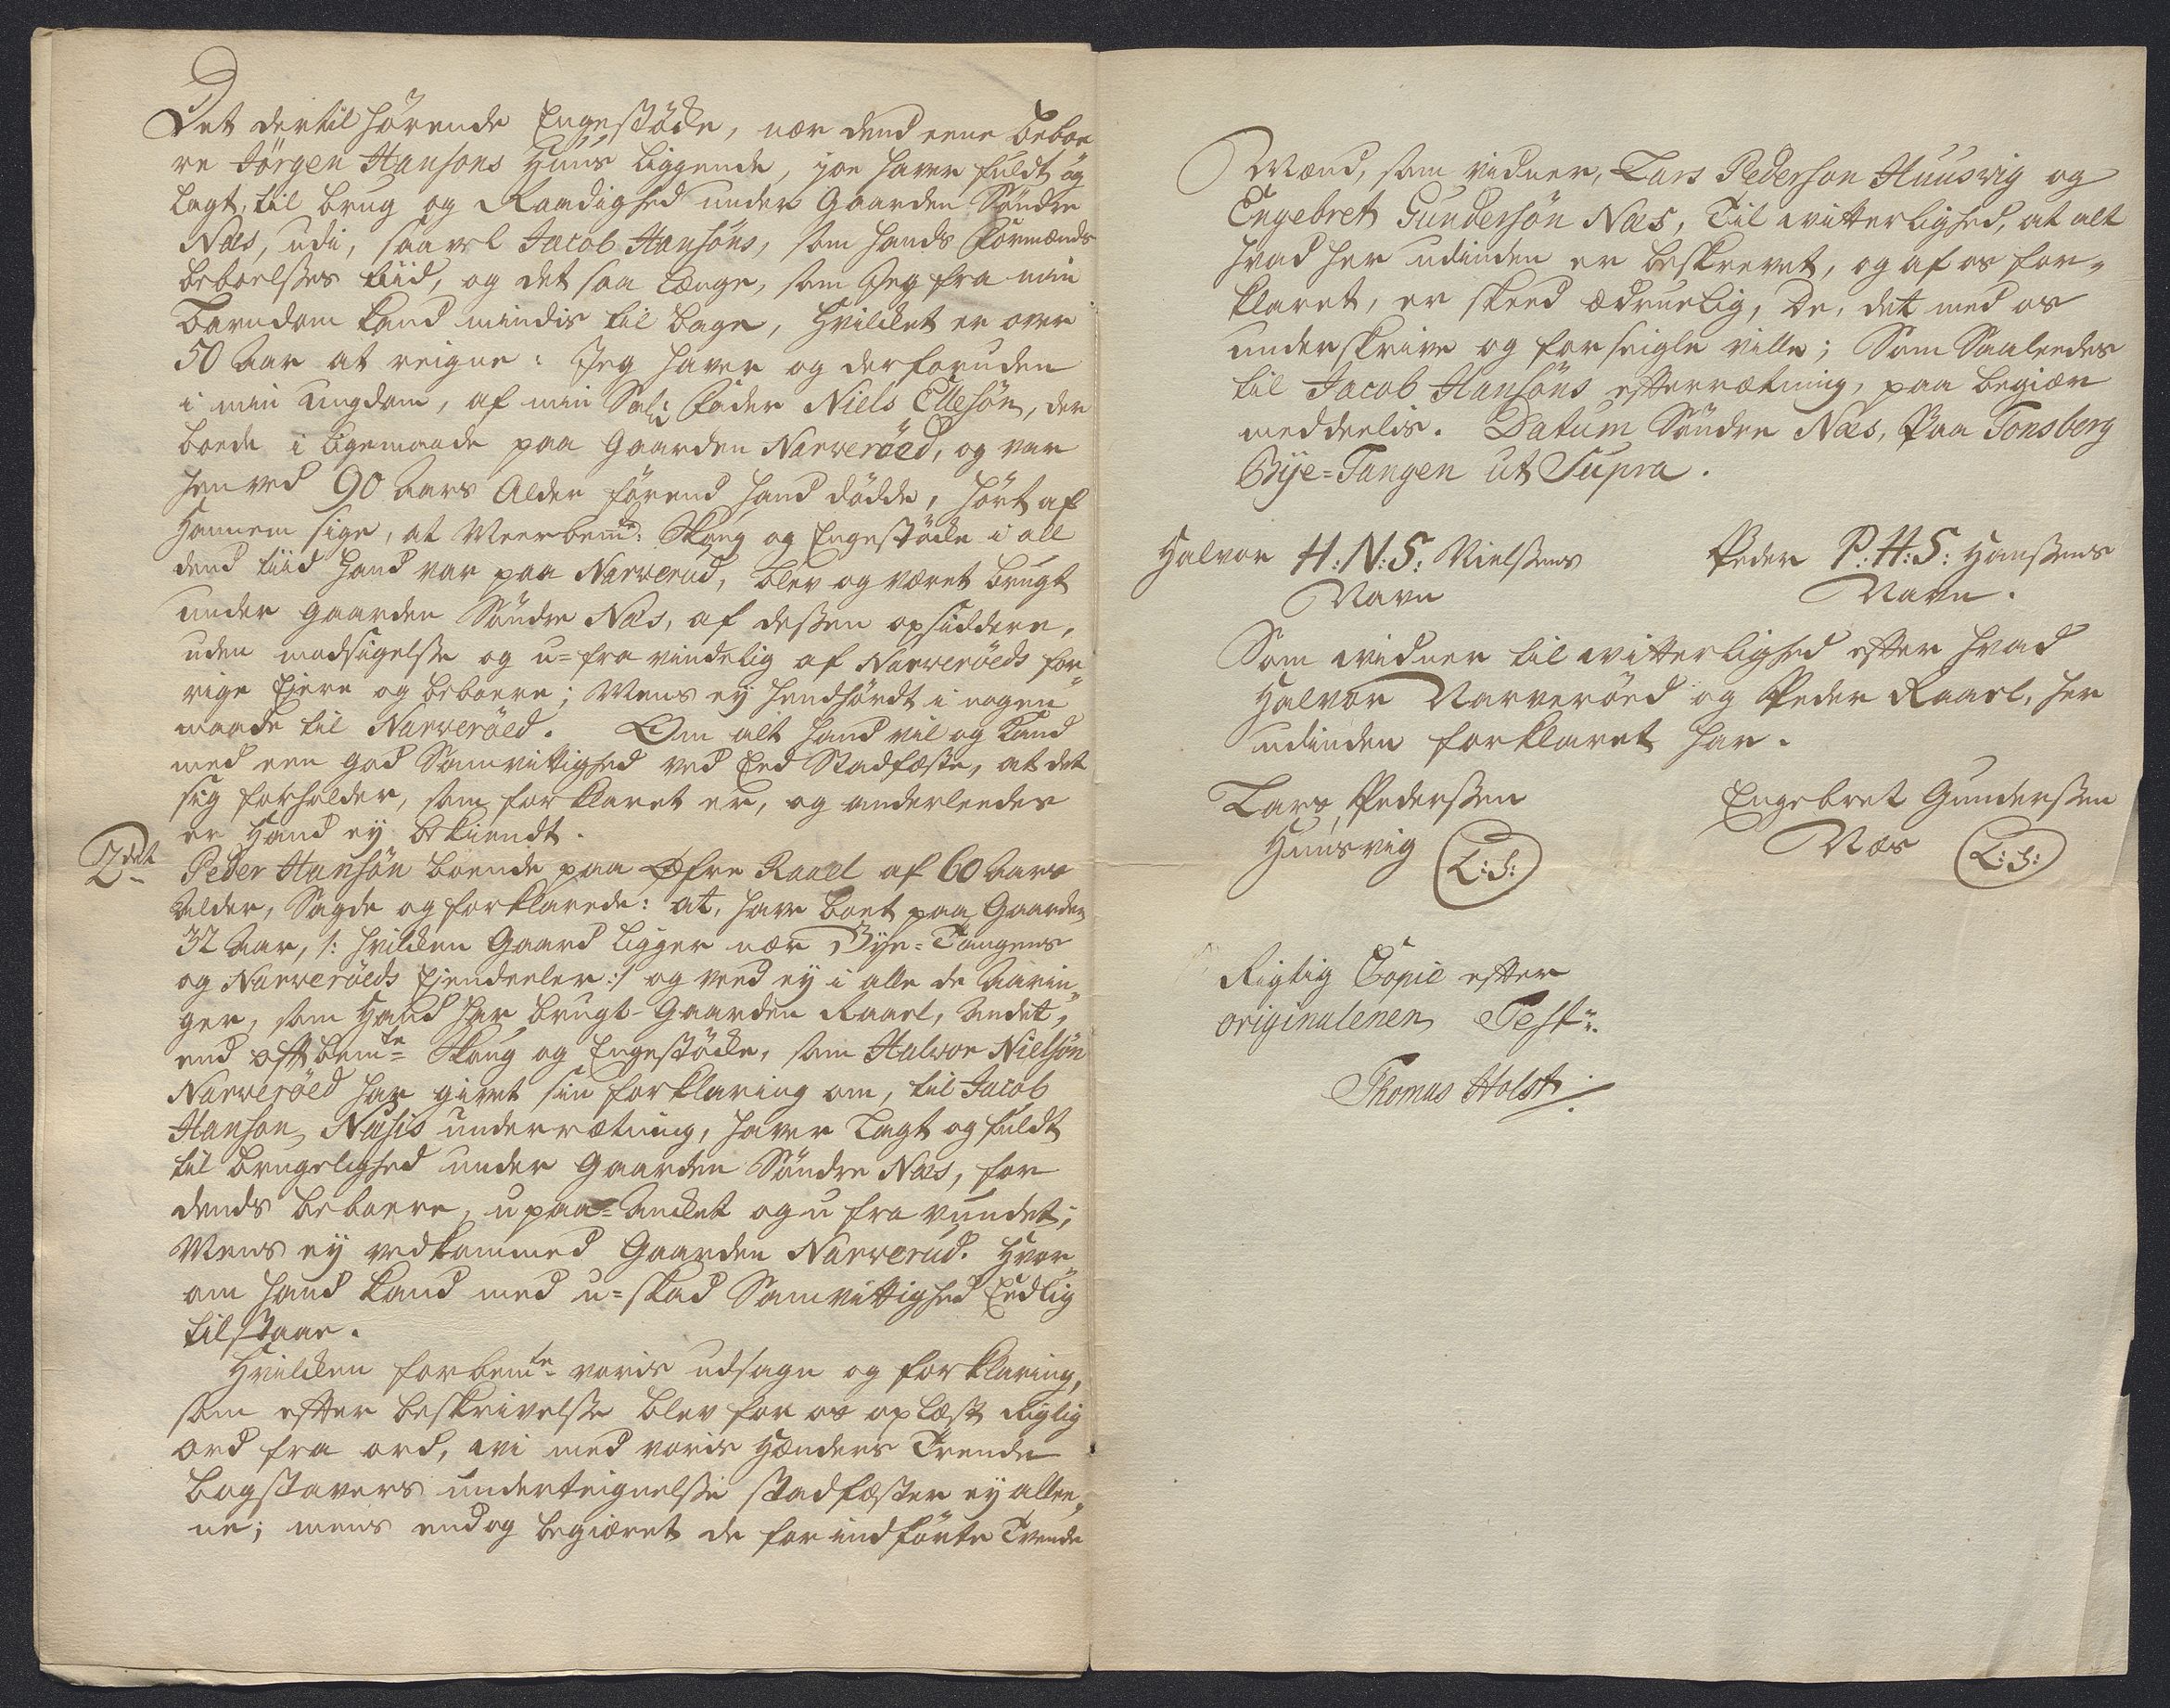 Det dertil hørende Engestøcke, nær dend eene beboe
re Jørgen Hansøns Huus liggende, joe haver fuldt og
lagt, til brug og Raadighed under Gaarden Søndre
Næs, udi, saavel Jacob Hansøns, som hands Formænds
beboelses tiid, og det saa Længe, som Jeg fra min
Barndom kand mindis til bage, Hvilcket er over
50 Aar at reigne: Jeg haver og derforuden
i min Ungdom, af min Sal: Fader Niels Ellesøn, der
boede i ligemaade paa Gaarden Narverøed, og var
hen ved 90 Aars Alder førend hand dødde, hørt af
Hannem sige, at Meerbemte: Skoug og Engestöcke i all
dend tiid hand var paa Narverud, blev og været brugt
under gaarden Søndre Næs, af dessen opsiddere,
uden modsigelse og u=fravindelig af Narverøeds for„
rige Ejere og beboere; Mens ey henhørdt i nogen
maade til Narverøed. Om alt hand vil og kand
med een god Samvittighed ved Eed Stadfæste, at det
sig forholder, som forklaret er, og anderleedes
er Hand ey bekiendt.
2det Peder Hansøn boende paa Øfre Raael af 60 Aars
Alder, Sagde og forklarede: at, have boet paa Gaarden
32 Aar, /: hvilcken Gaard ligger nær Bye=Tangens
og Narverøeds Ejendeeler :/ og veed ey i alle de Aarin„
ger, som Hand har brugt Gaarden Raael, Andet,
end oftbemte Skoug og Engestöcke, som Halvor Nielsøn
Narverøed har givet sin forklaring om, til Jacob
Hanson Næsis underrætning, haver Lagt og fuldt
til brugelighed under Gaarden Søndre Næs, for
dends beboere, upaa=Ancket og u fravundet;
Mens ey vedkommed Gaarden Narverud. Hvor„
om hand kand med u=skad Samvittighed Eedlig
tilstaae.
Hvilcken forbemte voris udsagn og forklaring,
som efter beskrivelse blev for os oplæst Rigtig
ord fra ord, wi med voris Hænders Trende
bogstavers underteignelse stadfæster ey allee„
ne; mens endog begiæret de forindførte Tvende
Mænd, som vidner, Lars Pederson Huusvig og
Engebret Gundersøn Næs, Til witterlighed, at alt
hvad her udinden er beskrevet, og af os for„
klaret, er skeed ædruelig, De, det med os
underskrive og forseigle ville; Som Saaleedes
til Jacob Hansøns efterrætning, paa begiær
meddeelis. Datum Søndre Næs, Paa Tonsberg
Bÿe=Tangen ut Supra.
Halvor H:N:S: Nielsens Navn
Peder P:H:S: Hansens Navn.
Som widner til witterlighed efter hvad
Halvor Narverøed og Peder Raael, her
udinden forklaret har.
Lars Pedersen Huusvig L:S:
Engebret Gundersen Næs L:S:
Rigtig Copie efter
originalenen Test:
Thomas Holst